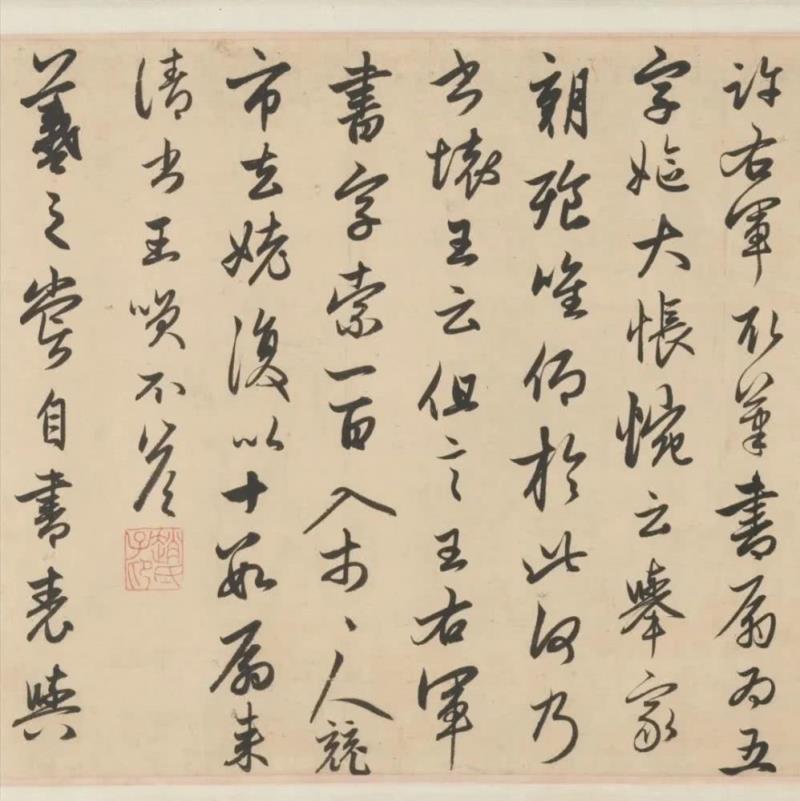 許右軍取筆書扇為五
字嫗大悵惋云舉家
朝飡唯仰於此何乃
書壞王云但言王右軍
書字索一百入市市人競
市去姥復以十數扇来
請書王笑不答
趙氏子昂
羲之常自書表與